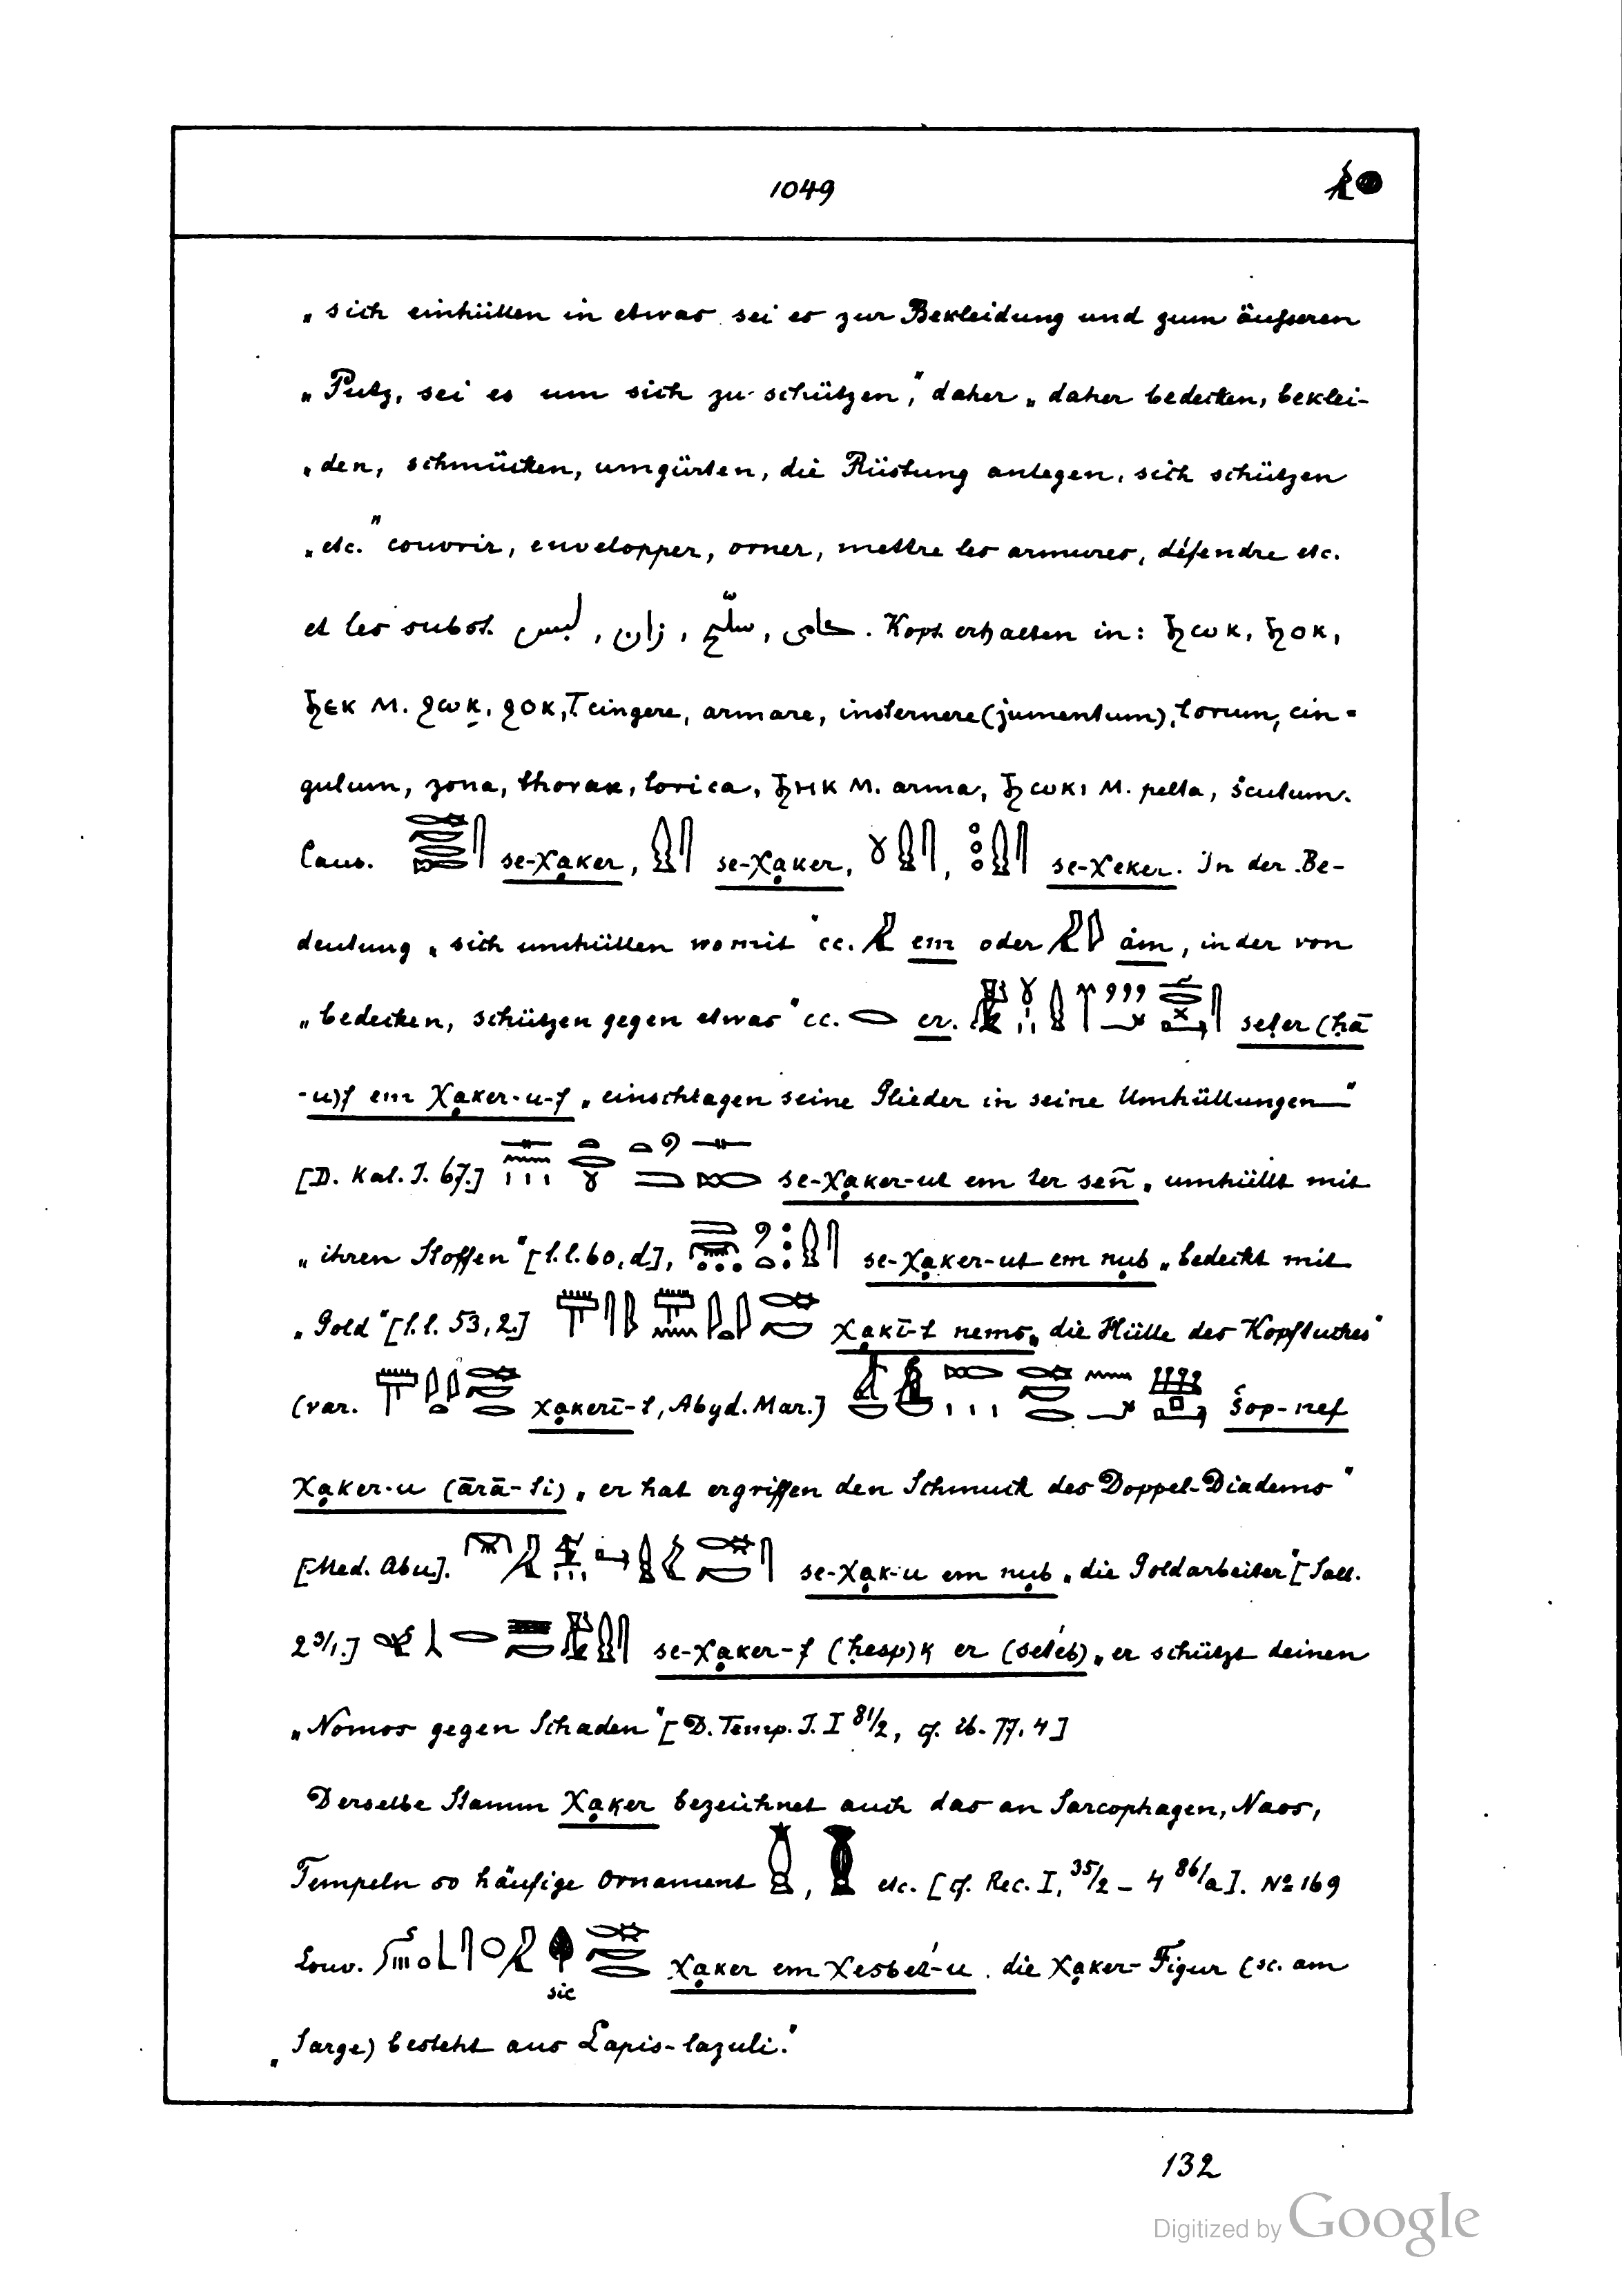 1049
„ sich einhüllen in etwas sei es zur Bekleidung und zum äußeren
„ Putz, sei es um sich zu schützen," daher „ daher bedecken, beklei-
„ den, schmücken, umgürten, die Rüstung anlegen, sich schützen
„ etc." couvrir, envelopper, orner, mettre les armures, défendre etc.
et les subst. لبس , زان , سلّح , حامى . Kopt. erhalten in: ϧωκ, ϧοκ,
ϧεκ M. ϩωκ, ϩοκ, T. cingere, armare, insternere (jumentum), lorum, cin=
gulum, zona, thorax, lorica, ϧнκ M. arma, ϧωκι M. pelta, scutum.
Caus. se-χaker, se-χaker, se-χeker. In der Be-
deutung „ sich umhüllen womit" cc. em oder ȧm, in der von
„ bedecken, schützen gegen etwas" cc. er. seṭer (ḥā
-u)f em χaker-u-f „ einschlagen seine Glieder in seine Umhüllungen"
[D. Kal. I. 67.] se-χaker-ut em ter sen „ umhüllt mit
„ ihren Stoffen" [l. l. 60, d], se-χaker-ut em nub „ bedeckt mit
„ Gold" [l. l. 53, 2.] χakī-t nems „ die Hülle des Kopftuches"
(var. χakerī-t, Abyd. Mar.] šop-nef
χaker-u (ārā-ti) „ er hat ergriffen den Schmuck des Doppel-Diadems"
[Med. Abu]. se-χak-u em nub „ die Goldarbeiter" [Sall.
2 3/1.] se-χaker-f (ḥesp)k er (seteb) „ er schützt deinen
„ Nomos gegen Schaden" [D. Temp. I. I 81/2, cf. ib. 77, 4]
Derselbe Stamm χaker bezeichnet auch das an Sarcophagen, Naos,
Tempeln so häufige Ornament , etc. [cf. Rec. I, 35/2 – 4 86/a]. No 169
Louv. χaker em χesbet-u . die χaker-Figur (sc. am
sic
„ Sarge) besteht aus Lapis-lazuli."
132
Digitized by Google